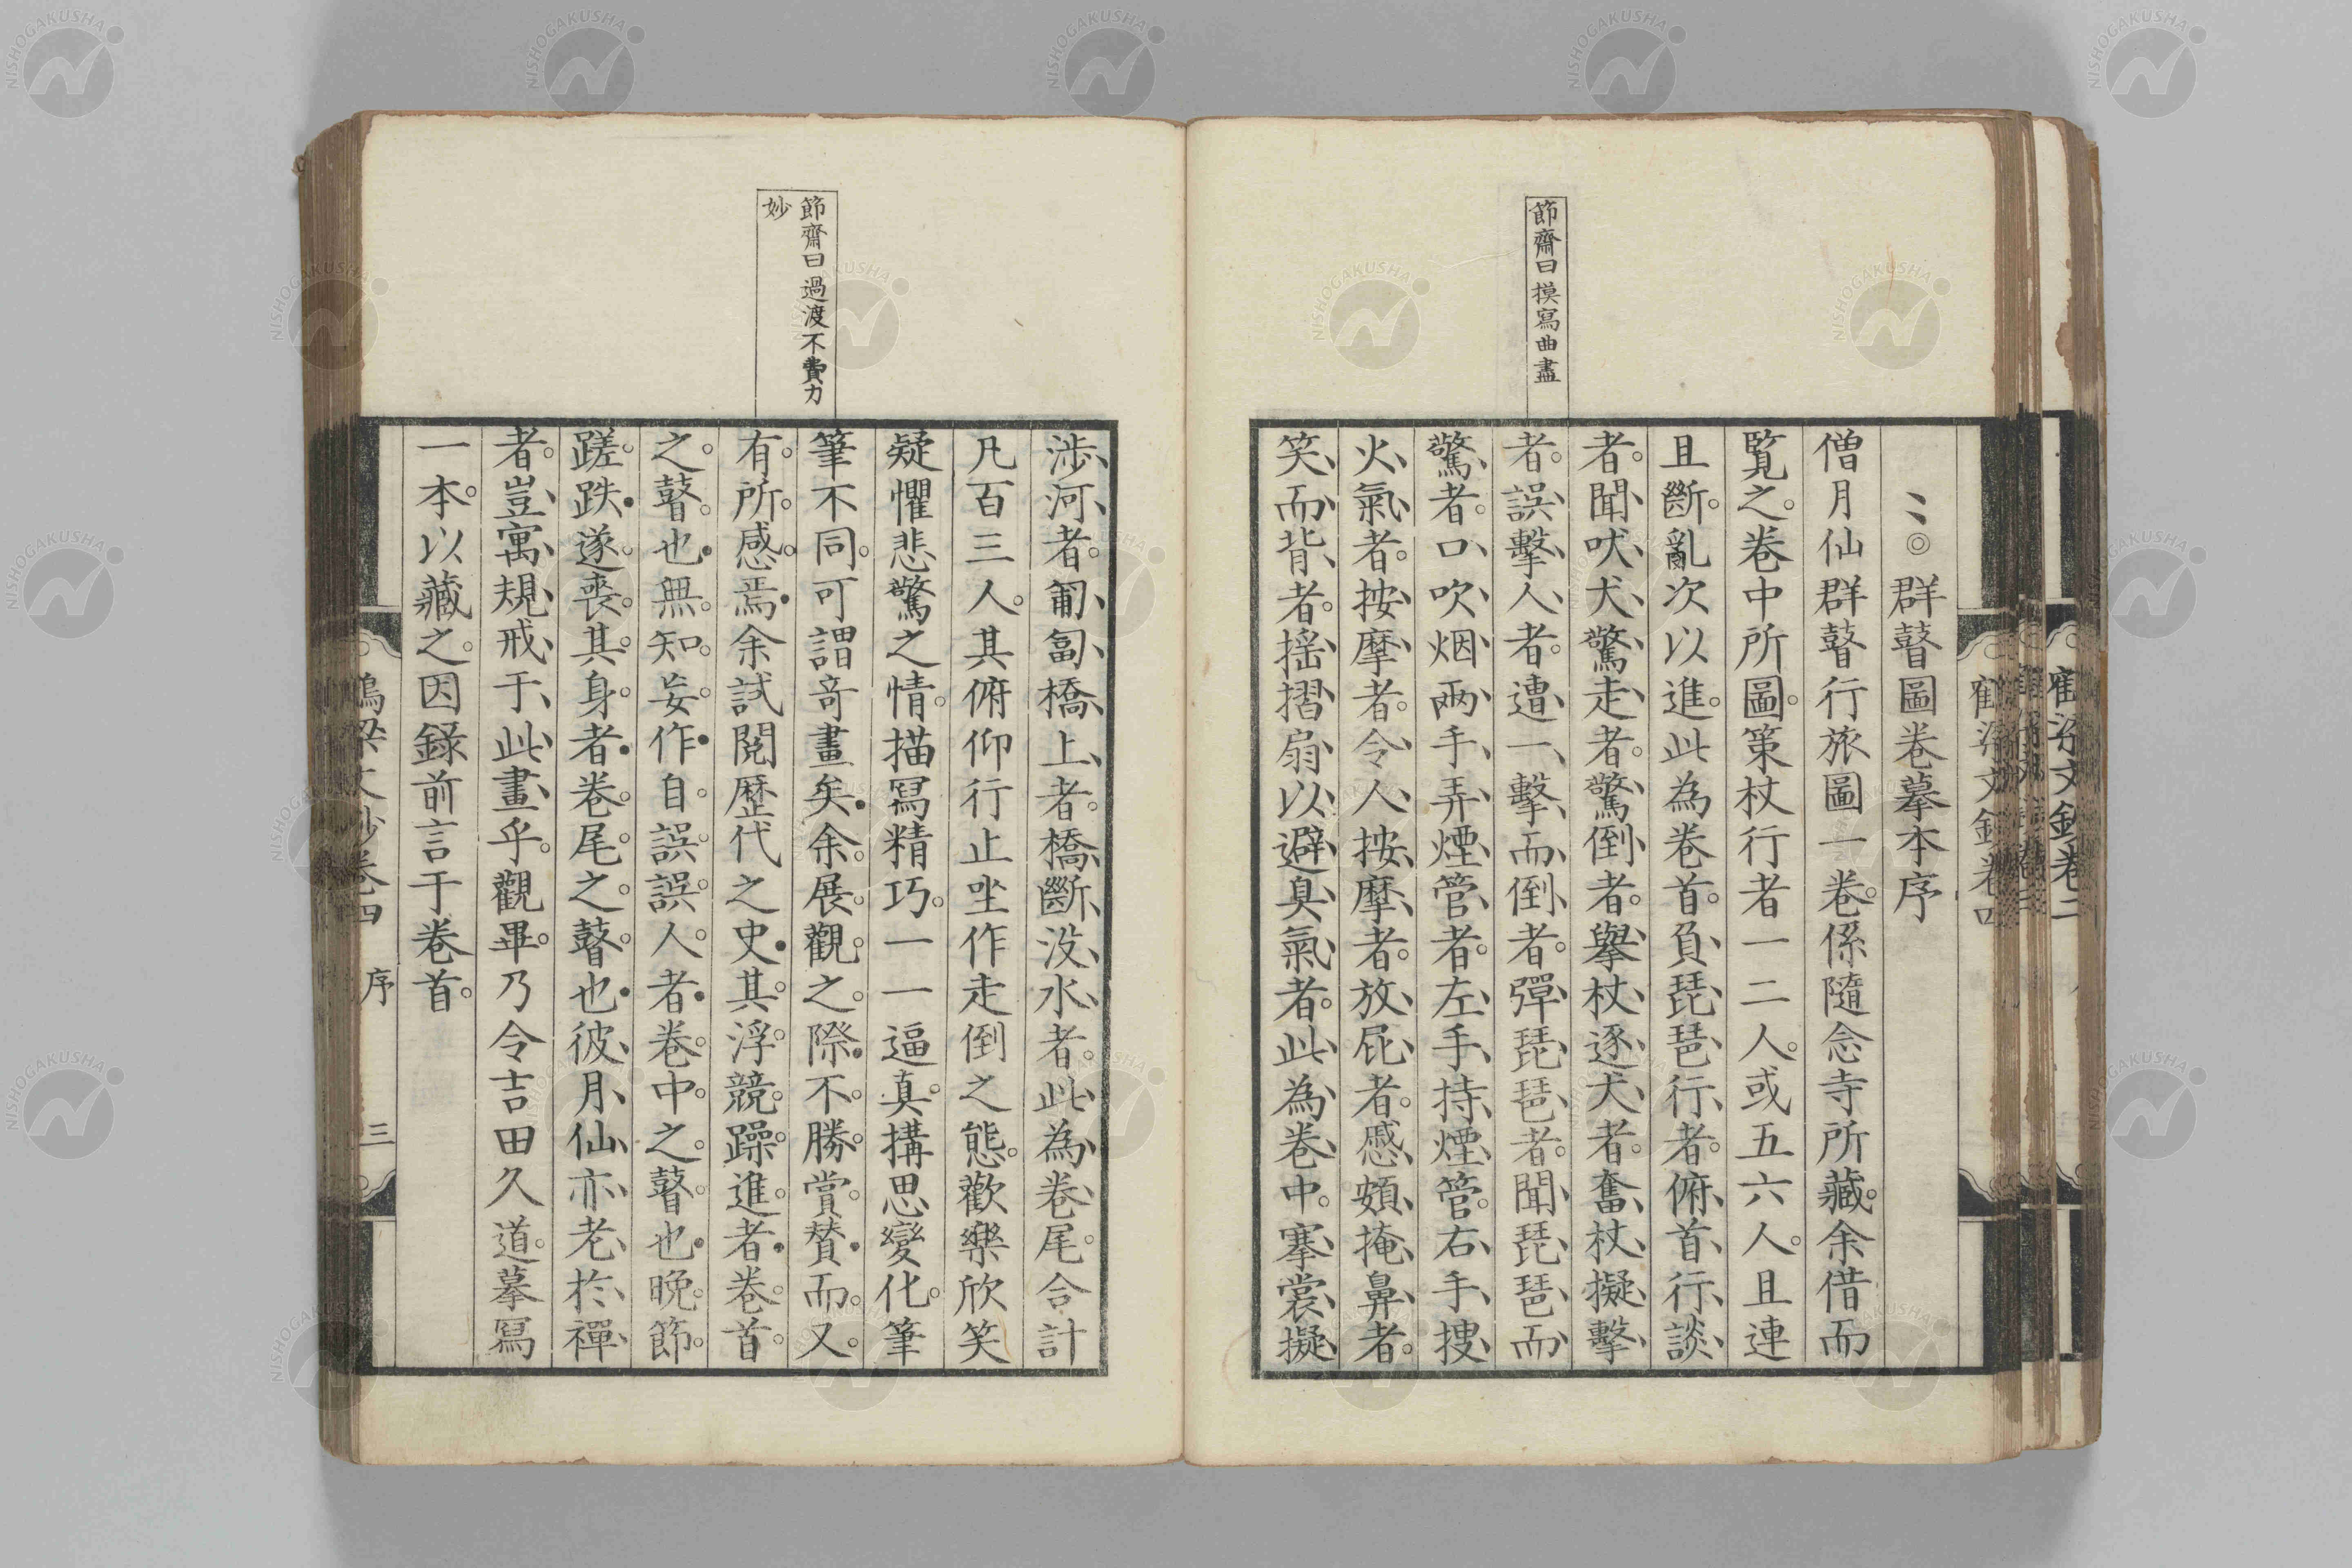 節齋曰摸寫曲盡
群瞽圖卷摹本序
僧月仙群瞽行旅圖一卷。係隨念寺所藏。余借而
覧之。卷中所圖。策杖行者一二人。或五六人。且連
且斷。亂次以進。此為卷首。負琵琶行者。俯首行談
者。聞吠犬驚走者。驚倒者。擧杖逐犬者。奮杖擬擊
者。誤擊人者。遭一擊而倒者。彈琵琶者。聞琵琶而
驚者。口吹烟兩手弄煙管者。左手持煙管。右手搜
火氣者。按摩者。令人按摩者。放屁者。慼頞掩鼻者。
笑而背者。揺摺扇以避臭氣者。此為卷中。搴裳擬
節齋曰過渡不費力
妙
渉河者。匍匐橋上者。橋斷没水者。此為卷尾。合計
凡百三人。其俯仰行止坐作走倒之態。歡樂欣笑
疑懼悲驚之情。描冩精巧。一一逼真。搆思變化。筆
筆不同。可謂竒畫矣。余展觀之際。不勝賞賛。而又
有所感焉。余試閲歴代之史。其浮競躁進者。卷首
之瞽也。無知妄作。自誤誤人者。卷中之瞽也。晩節
蹉跌。遂喪其身者。卷尾之瞽也。彼月仙亦老於禪
者。豈寓規戒于此畫乎。觀畢。乃令吉田久道。摹冩
一本。以藏之。因録前言于卷首。
鶴梁文鈔卷四
序
三